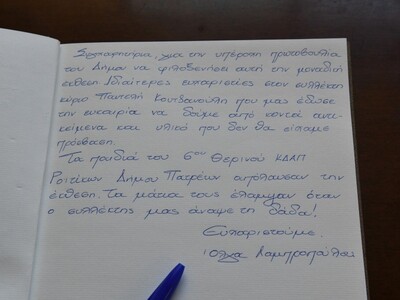 Συγχαρητήρια, για την υπέροχη πρωτοβουλία
του Δήμου να φιλοξενήσει αυτή την μοναδική
έκθεση. Ιδιαίτερες ευχαριστίες στον συλλέκτη
κύριο Παντελή που μας έδωσε
την ευκαιρία να δούμε από κοντά αντι-
κείμενα και υλικό που δεν θα είχαμε
πρόσβαση.
Τα παιδιά του 6ου Θερινού ΚΔΑΠ
Ροϊτίκων Δήμου Πατρέων απόλαυσαν την
έκθεση. Τα μάτια τους έλαμψαν όταν
ο συλλέκτης μας άναψε τη δάδα!
Ευχαριστούμε.
Λαμπροπούλου